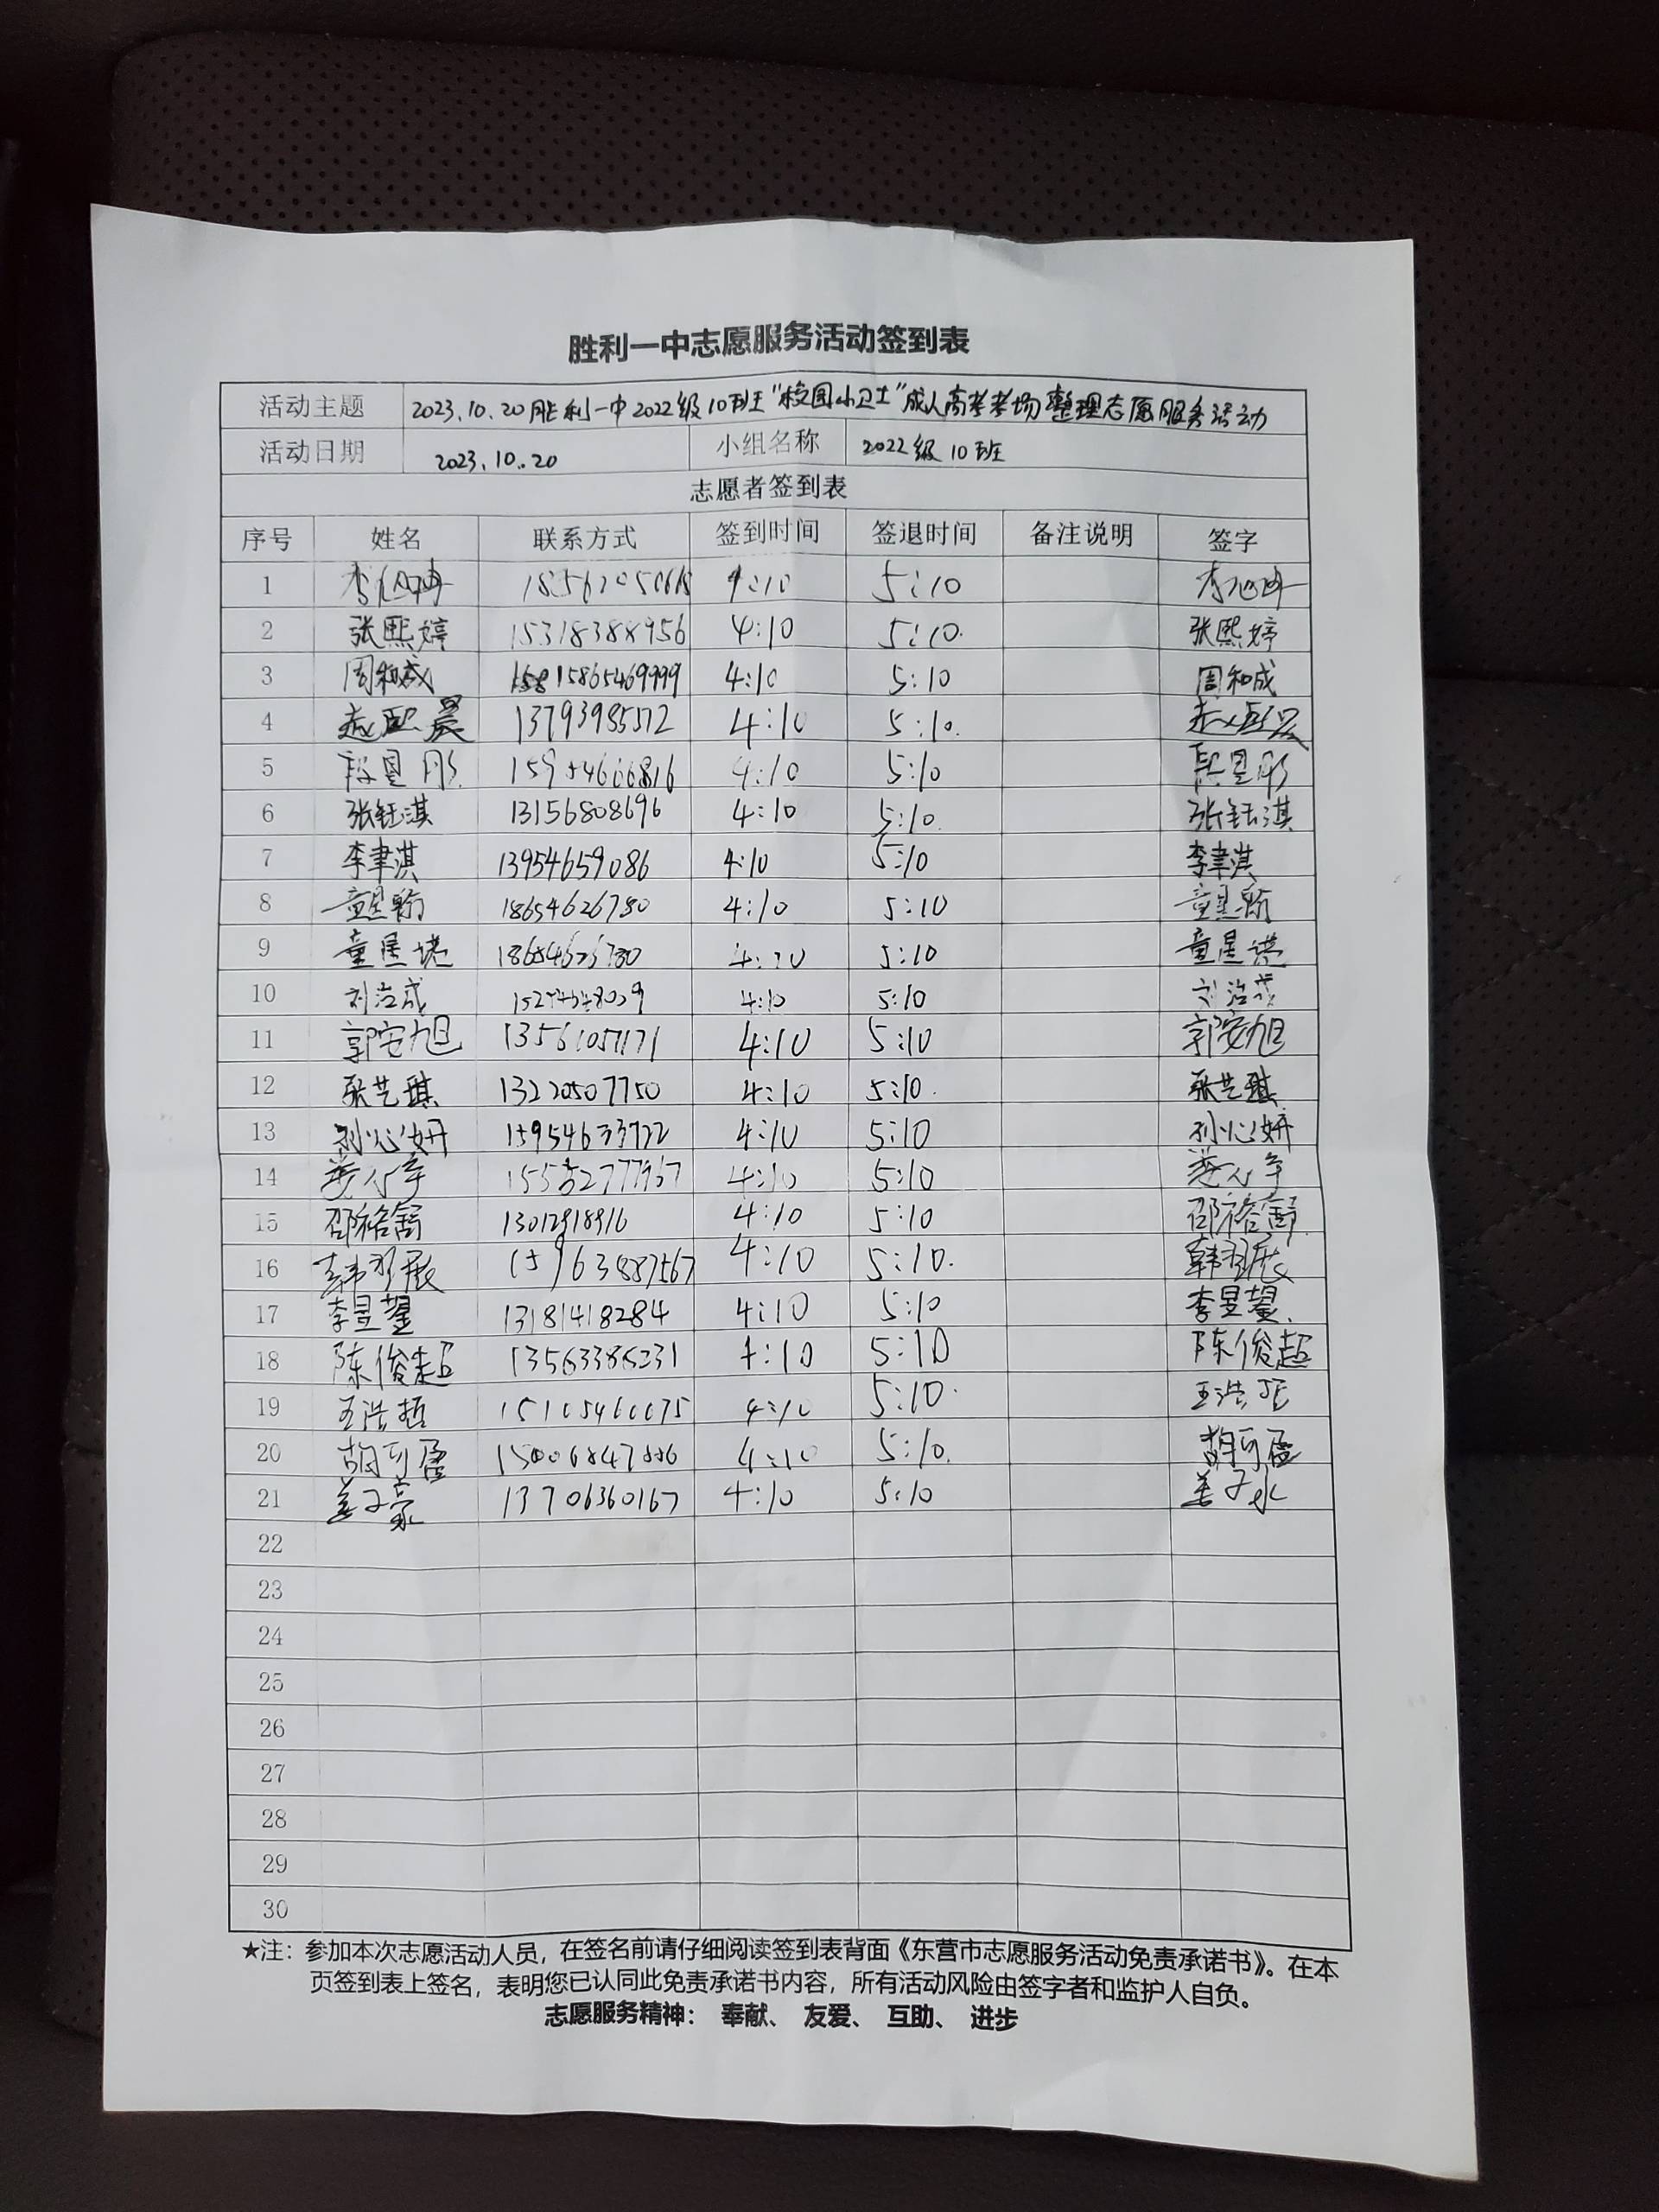 胜利一中志愿服务活动签到表
活动主题 2023.10.20胜利一中2022级10班“校园小卫士”成人高考考场整理志愿服务活动
活动日期 2023.10.20 小组名称 2022级10班
志愿者签到表
序号 姓名 联系方式 签到时间 签退时间 备注说明 签字
1 4:10 5:10
2 张熙婷 15318388956 4:10 5:10 张熙婷
3 周和成 15865469999 4:10 5:10 周和成
4 赵熙晨 13793985572 4:10 5:10
5 段昱彤 15954666816 4:10 5:10 段昱彤
6 张钰淇 13156808696 4:10 5:10 张钰淇
7 李聿淇 13954659086 4:10 5:10 李聿淇
8 童星翰 18654626780 4:10 5:10 童星翰
9 童星 4:10 5:10 童星
10 刘治成 4:10 5:10 刘治成
11 郭安旭 13561057171 4:10 5:10 郭安旭
12 张艺琪 13220507750 4:10 5:10 张艺琪
13 刘心妍 15954633722 4:10 5:10 刘心妍
14 4:10 5:10
15 邵裕舒 13012918916 4:10 5:10 邵裕舒
16 韩羽展 15963887567 4:10 5:10 韩羽展
17 李昱 13181418284 4:10 5:10 李昱
18 陈俊超 4:10 5:10 陈俊超
19 王浩哲 4:10 5:10 王浩
20 胡可盈 4:10 5:10 胡可盈
21 姜子豪 13706360167 4:10 5:10 姜子
22
23
24
25
26
27
28
29
30
★注：参加本次志愿活动人员，在签名前请仔细阅读签到表背面《东营市志愿服务活动免责承诺书》。在本
页签到表上签名，表明您已认同此免责承诺书内容，所有活动风险由签字者和监护人自负。
志愿服务精神： 奉献、 友爱、 互助、 进步